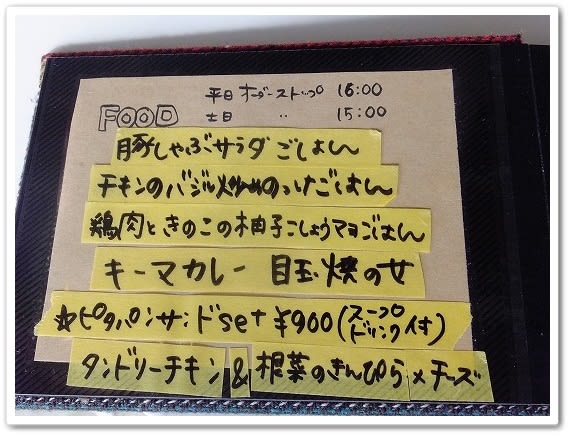 FOOD
平日 オーダーストップ 16:00
土日 〃 15:00
豚しゃぶサラダごはん
チキンのバジル炒めのっけごはん
鶏肉ときのこの柚子こしょうマヨごはん
キーマカレー 目玉焼のせ
☆ピタパンサンドset ¥900(スープ ドリンク付)
タンドリーチキン & 根菜のきんぴら×チーズ